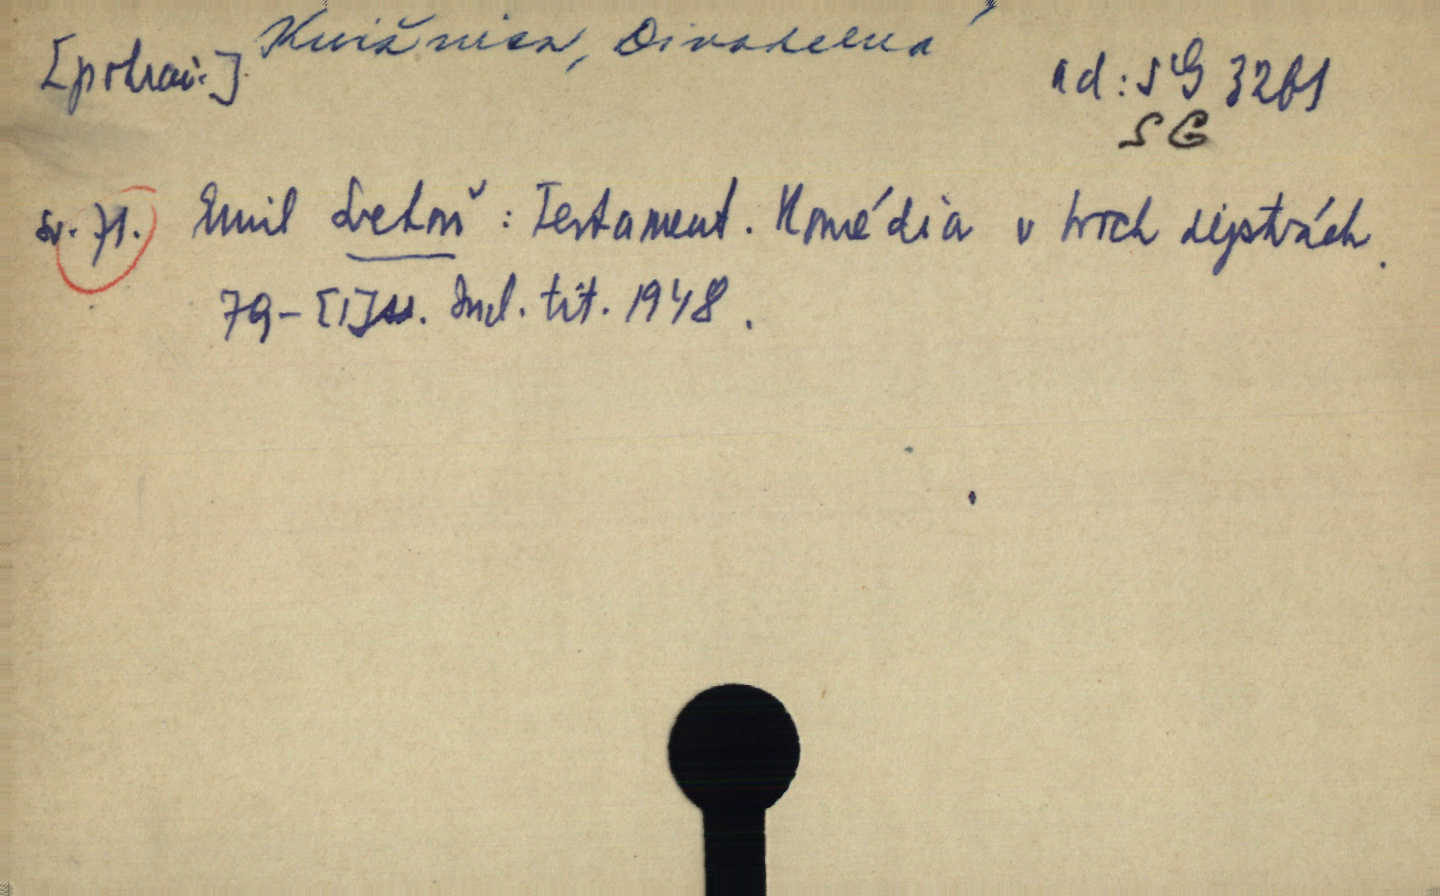 [pokrač.] Knižnica, Divadelná
ad: SG 3261
SG
Sv. 71. Emil Svetoň: Testament. Komédia v troch dejstvách.
79-[1] s. Incl. tit. 1948.